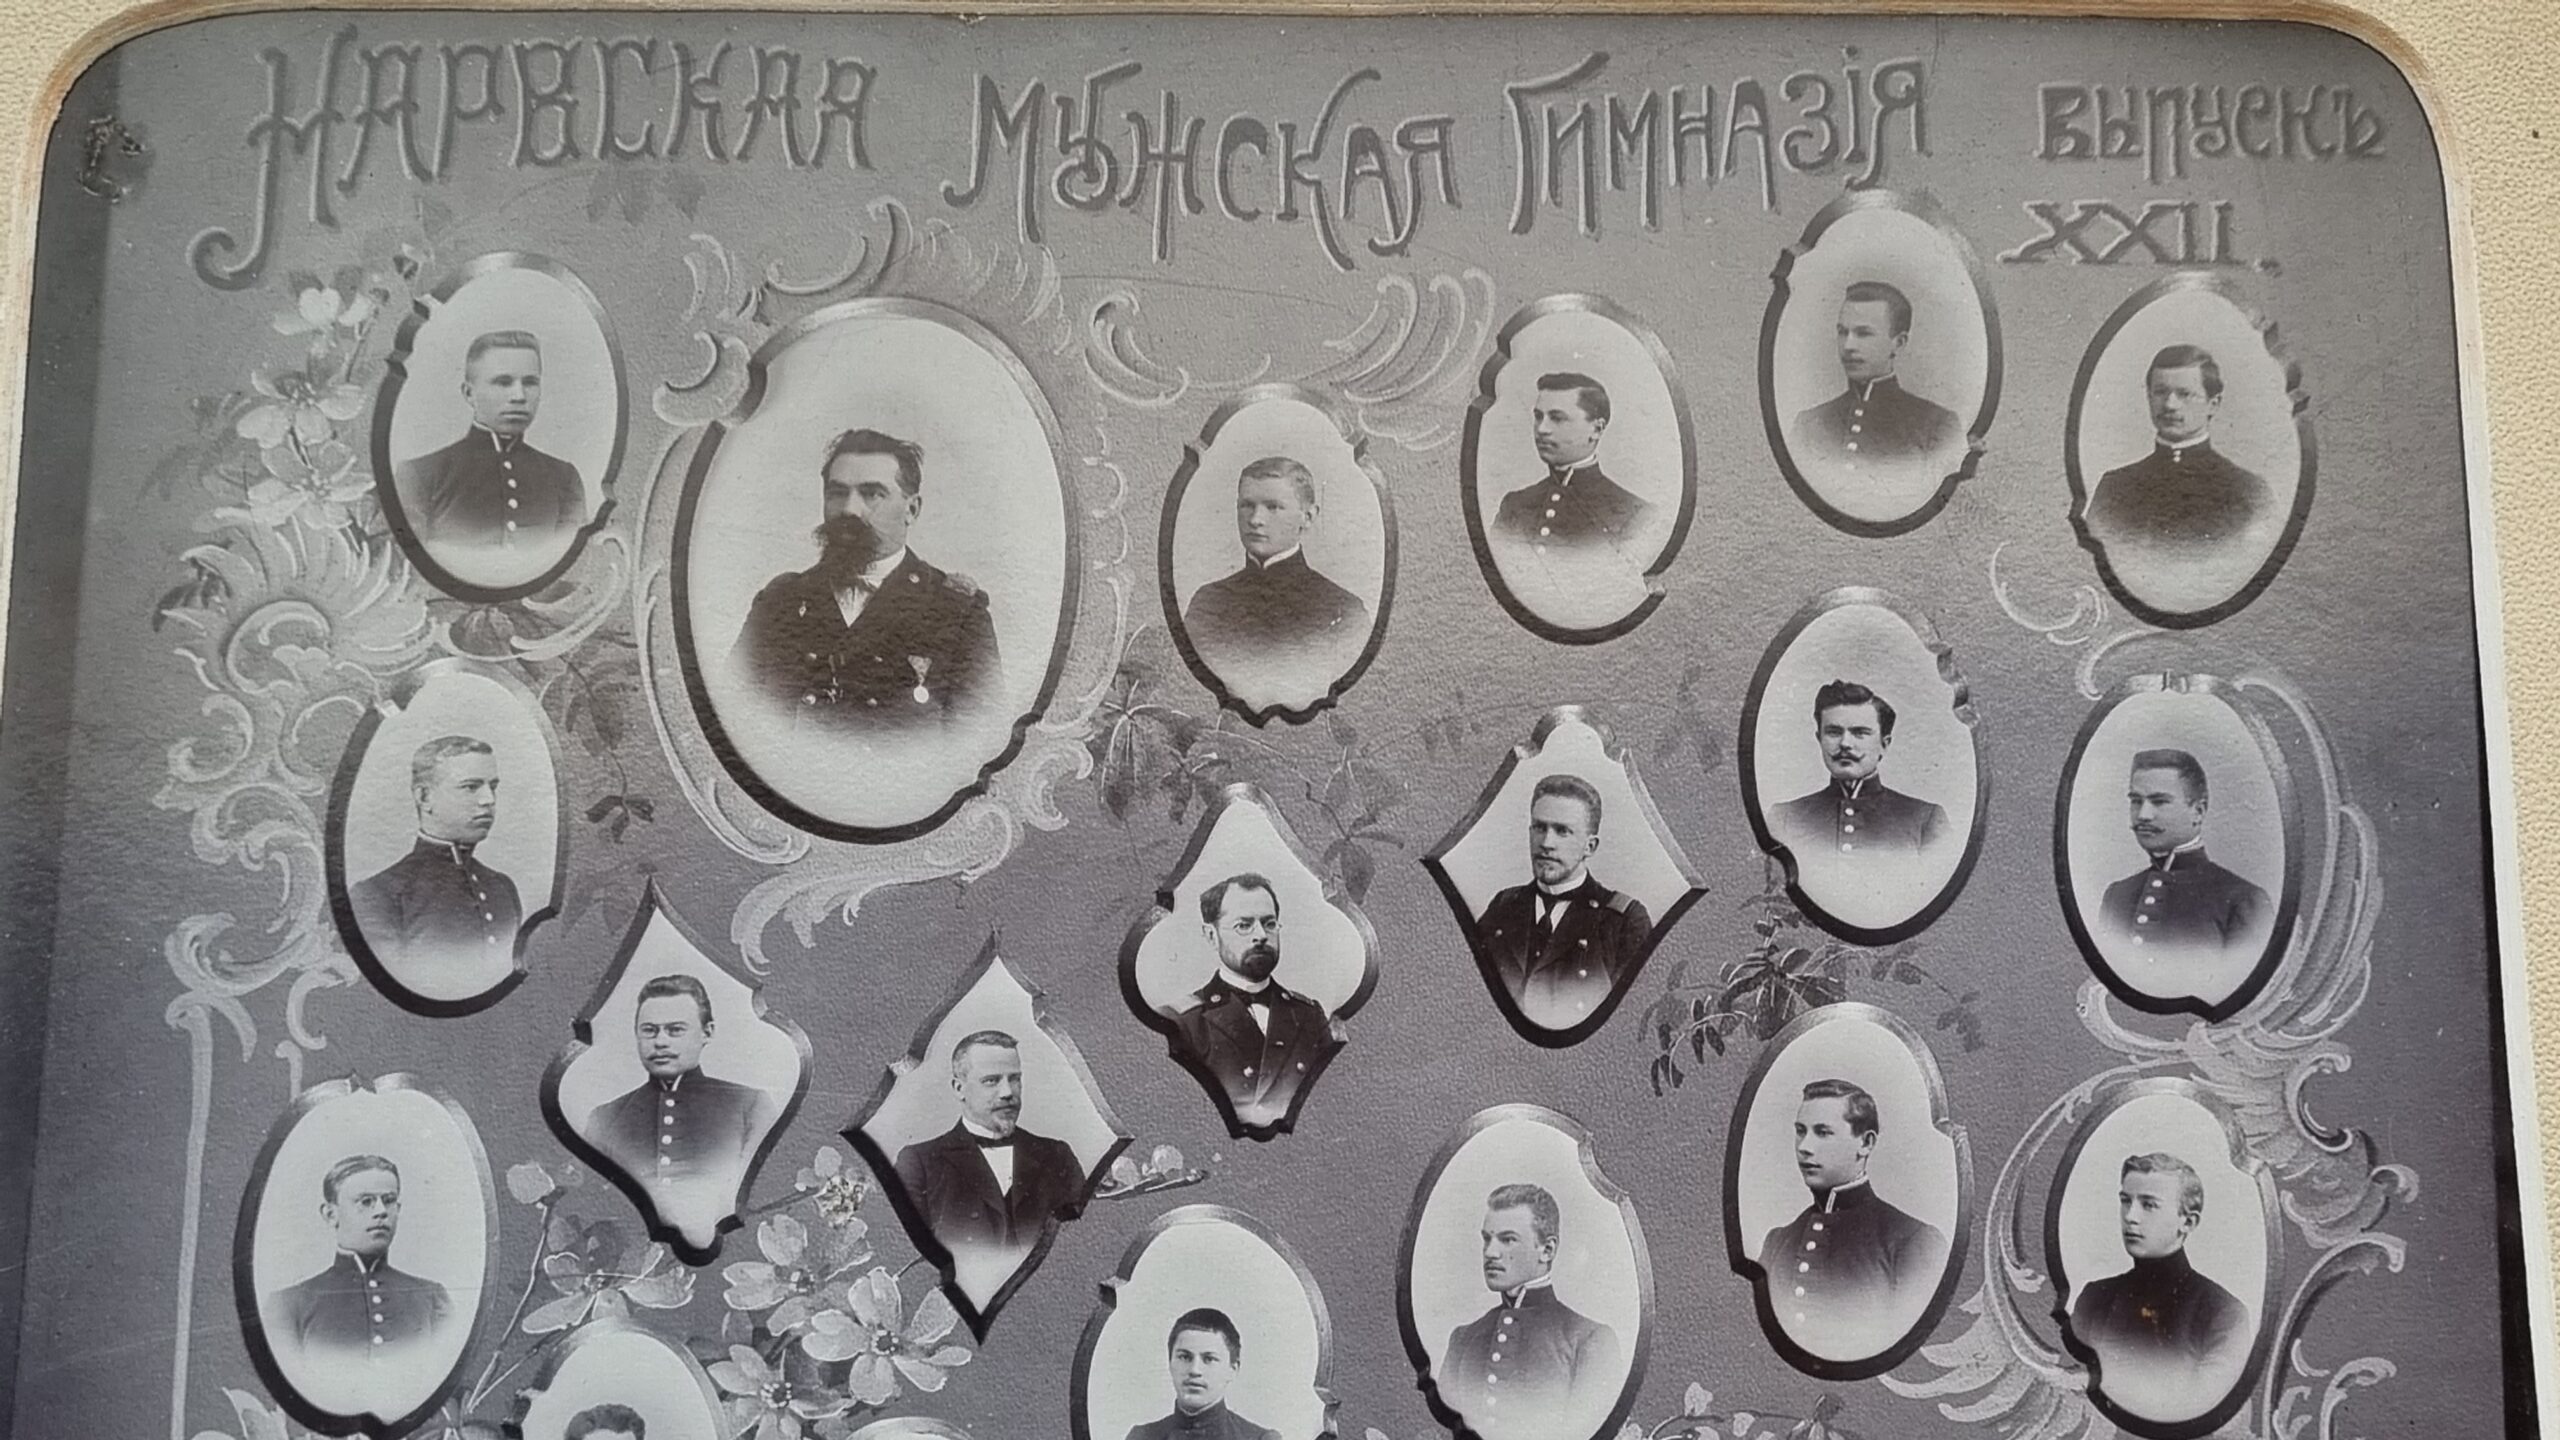 Нарвская Мужская Гимназія Выпускъ
XXII.